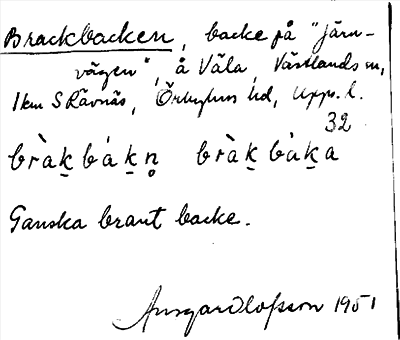 Brackbacken, backe på "järn-
vägen", å Väla, Västlands sn,
1 km S Rävnäs, Örbyhus hd, Upps. l.
32
bràk̠bák̠n̥ bràk̠bàk̠a
Ganska brant backe.
Ansgar Olofsson 1951